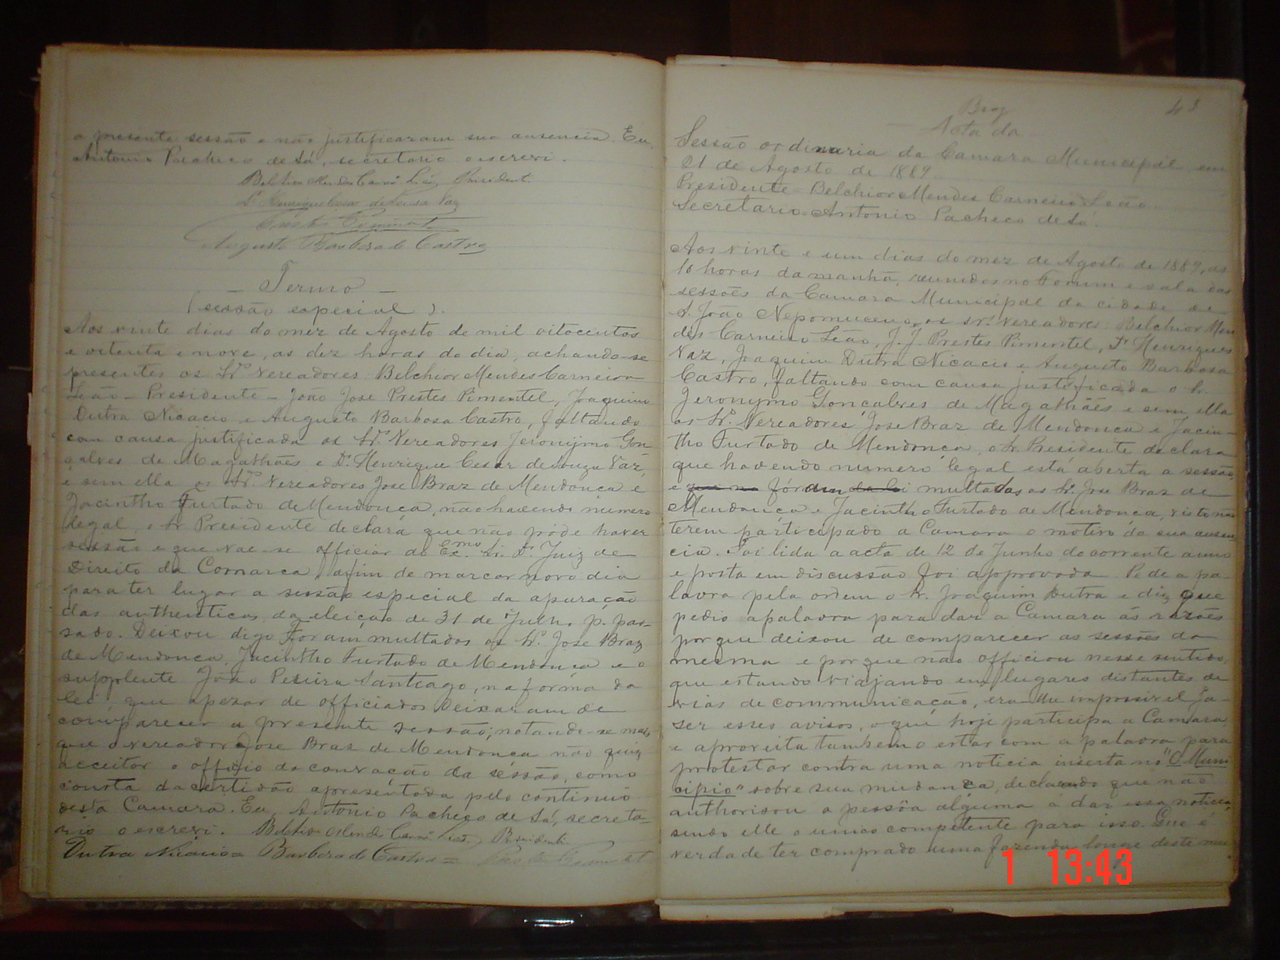 a presente sessão e não justificaram sua ausencia. Eu,
Antonio Pacheco de Sá, secretario o escrevi.
Belchior Mendes Carnº Leão, President
Dr Henrique Cesar de Souza Vaz
Augusto Barbosa de Castro
— Termo —
(sessão especial).
Aos vinte dias do mez de Agosto de mil oitocentos
e oitenta e nove, as dez horas do dia, achando-se
presentes os Srs Vereadores Belchior Mendes Carneiro
Leão — Presidente — João José Prestes Pimentel, Joaquim
Dutra Nicacio e Augusto Barbosa Castro, faltando
com causa justificada os Srs Vereadores Jeronymo Gon-
çalves de Magalhães e Dr Henrique Cesar de Souza Vaz,
e sem ella os Srs Vereadores José Braz de Mendonca e
Jacintho Furtado de Mendonca, não havendo numero
legal, o Sr Presidente declara que não póde haver
sessão e que vae-se officiar ao Exmo Sr Dr Juiz de
Direito da Comarca afim de marcar novo dia
para ter lugar a sessão especial da apuração
das authenticas da eleição de 31 de Julho p. pas-
sado. Deixou digo Foram multados os Srs José Braz
de Mendonca, Jacintho Furtado de Mendonca e o
supplente João Pereira Santiago, na forma da
lei, que apezar de officiados deixaram de
comparecer a presente sessão; notando-se mais
que o vereador Jose Braz de Mendonca não quiz
acceitar o officio da convocação da sessão, como
consta da certidão apresentada pelo continuo
desta Camara. Eu, Antonio Pacheco de Sá, secreta-
rio o escrevi. Belchior Mendes Carnº Leão, Presidente
Dutra Nicacio = Barbosa de Castro =
43
Acta da
Sessão ordinaria da Camara Municipal em
21 de Agosto de 1889
Presidente - Belchior Mendes Carneiro Leão.
Secretario - Antonio Pacheco de Sá.
Aos vinte e um dias do mez de Agosto de 1889, as
10 horas da manhã, reunidos no Forum e sala das
sessões da Camara Municipal da cidade de
S. João Nepomuceno, os Srs Vereadores: Belchior Men-
des Carneiro Leão, J. J. Prestes Pimentel, Dr Henrique
Vaz, Joaquim Dutra Nicacio e Augusto Barbosa
Castro, faltando com causa justificada o Sr
Jeronymo Gonçalves de Magalhães e sem ella
os Srs Vereadores José Braz de Mendonca e Jacin-
tho Furtado de Mendonca, o Sr Presidente declara
que havendo numero legal está aberta a sessão
e foram multados os Srs Jose Braz de
Mendonca e Jacintho Furtado de Mendonca, visto não
terem participado a Camara o motivo da sua ausen-
cia. Foi lida a acta de 12 de Junho do corrente anno
e posta em discussão foi approvada. Pede a pa-
lavra pela ordem o Sr. Joaquim Dutra e diz que
pedio a palavra para dar a Camara ás rasões
porque deixou de comparecer as sessões da
mesma e porque não officiou nesse sentido,
que estando viajando em lugares distantes de
vias de communicação, era-lhe impossivel fa-
ser esses avisos, o que hoje participa a Camara,
e aproveita tambem o estar com a palavra para
protestar contra uma noticia inserta no "O Muni-
cipio" sobre sua mudança, declarando que não
authorisou a pessôa alguma á dar essa noticia,
sendo elle o unico competente para isso. Que é
verdade ter comprado uma fazenda longe deste mu-
1 13:43